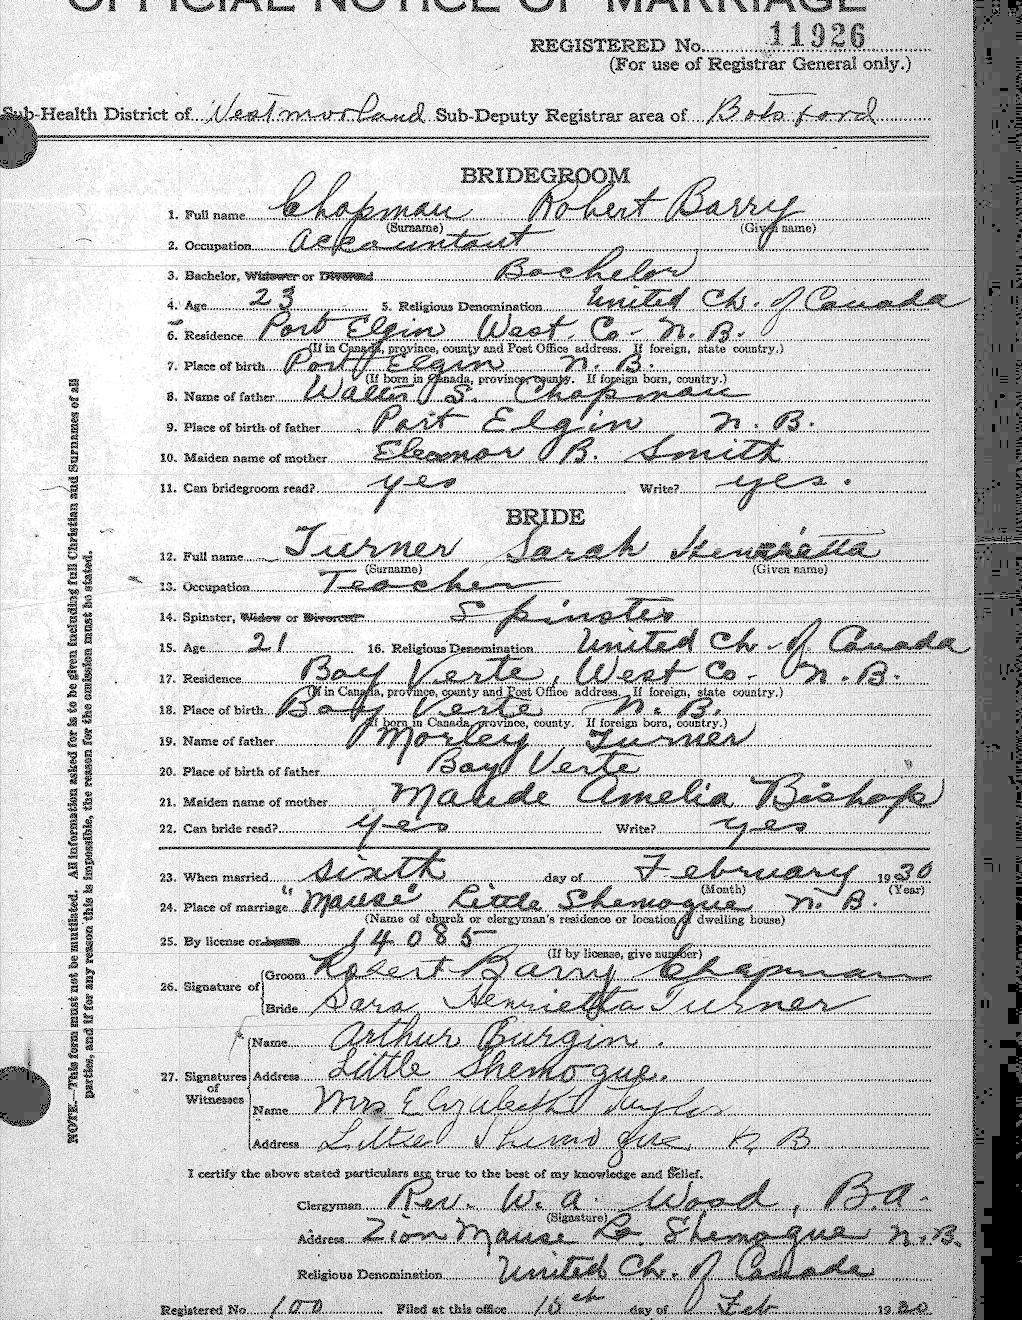 OFFICIAL NOTICE OF MARRIAGE
REGISTERED No. 11926
(For use of Registrar General only.)
Sub-Health District of Westmorland Sub-Deputy Registrar area of Botsford
BRIDEGROOM
1. Full name Chapman Robert Barry
(Surname) (Given name)
2. Occupation Accountant
3. Bachelor, Widower or Divorced Bachelor
4. Age 23 5. Religious Denomination United Ch. of Canada
6. Residence Port Elgin West. Co. N. B.
(If in Canada, province, county and Post Office address. If foreign, state country.)
7. Place of birth Port Elgin N. B.
(If born in Canada, province, county. If foreign born, country.)
8. Name of father Walter S. Chapman
9. Place of birth of father Port Elgin N. B.
10. Maiden name of mother Eleanor B. Smith
11. Can bridegroom read? yes Write? yes.
BRIDE
12. Full name Turner Sarah Henrietta
(Surname) (Given name)
13. Occupation Teacher
14. Spinster, Widow or Divorcee Spinster
15. Age 21 16. Religious Denomination United Ch. of Canada
17. Residence Bay Verte, West Co- N. B.
(If in Canada, province, county and Post Office address. If foreign, state country.)
18. Place of birth Bay Verte N. B.
(If born in Canada, province, county. If foreign born, country.)
19. Name of father Morley Turner
20. Place of birth of father Bay Verte
21. Maiden name of mother Maude Amelia Bishop
22. Can bride read? yes Write? yes
23. When married sixth day of February 1930
(Month) (Year)
24. Place of marriage "Manse" Little Shemogue N. B.
(Name of church or clergyman's residence or location of dwelling house)
25. By license or banns 14085
(If by license, give number)
26. Signature of Groom Robert Barry Chapman
Bride Sara Henrietta Turner
27. Signatures of Witnesses
Name Arthur Burgin.
Address Little Shemogue.
Name Mrs Elizabeth Taylor
Address Little Shemogue N B
I certify the above stated particulars are true to the best of my knowledge and belief.
Clergyman Rev. W. A. Wood, B.A.
(Signature)
Address Zion Manse Lt. Shemogue N.B.
Religious Denomination United Ch. of Canada
Registered No 100 Filed at this office 15th day of Feb 1930
NOTE.—This form must not be mutilated. All information asked for is to be given including full Christian and Surnames of all
parties, and if for any reason this is impossible, the reason for the omission must be stated.